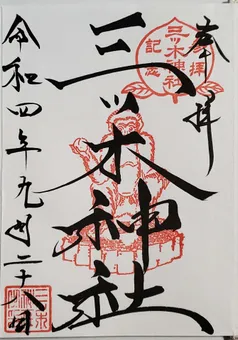 奉拝
三ツ木神社
令和四年九月二十八日
参拝
三ツ木神社
記念